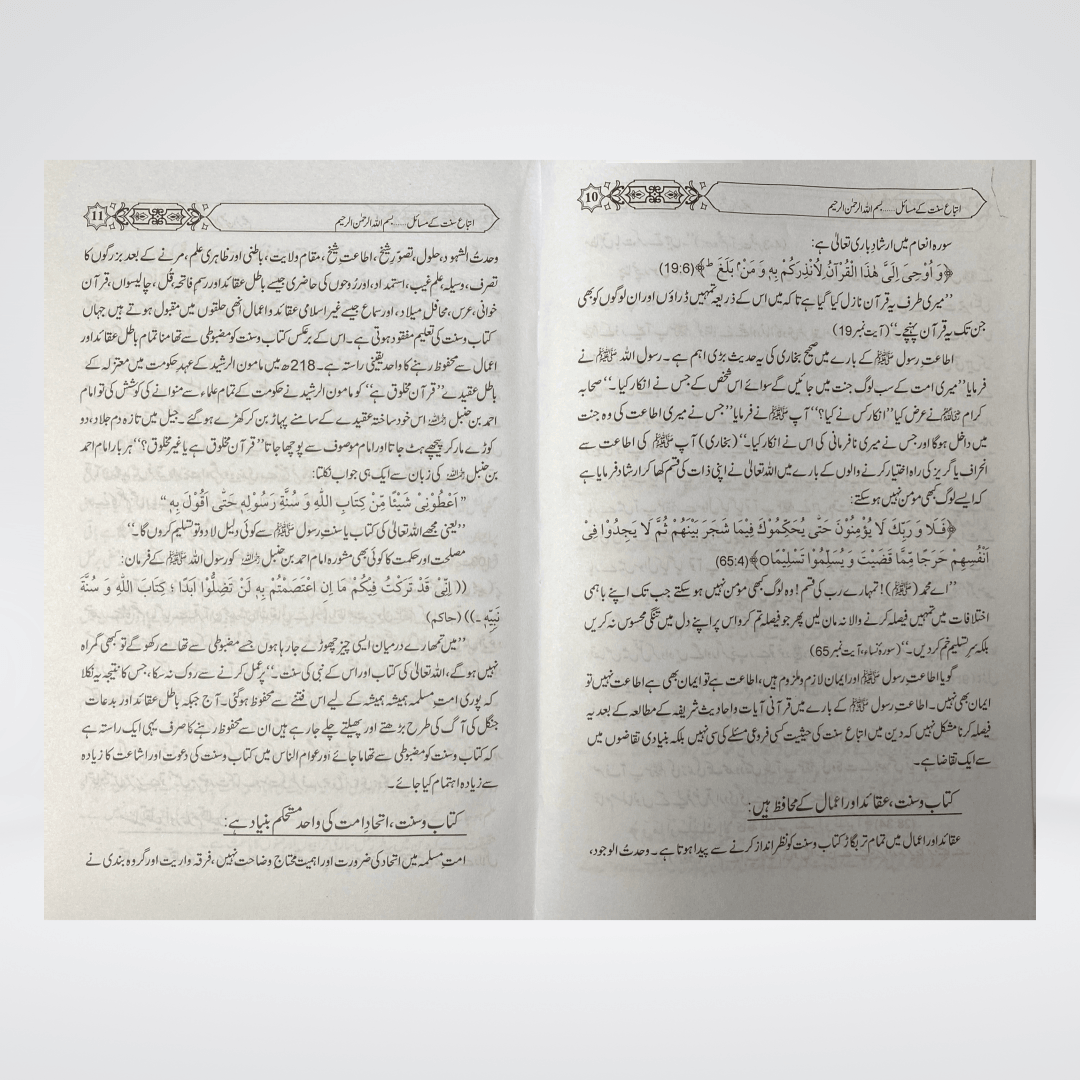 اتباع سنت کے مسائل ...... بسم اللہ الرحمٰن الرحیم
10
سورہ انعام میں ارشاد باری تعالیٰ ہے:
﴿وَ اُوْحِیَ اِلَیَّ هٰذَا الْقُرْآنُ لِاُنْذِرَکُمْ بِهٖ وَ مَنْ ۢ بَلَغَ ط﴾(19:6)
’’میری طرف یہ قرآن نازل کیا گیا ہے تاکہ میں اس کے ذریعہ تمہیں ڈراؤں اور ان لوگوں کو بھی
جن تک یہ قرآن پہنچے۔‘‘ (آیت نمبر 19)
اطاعت رسول ﷺ کے بارے میں صحیح بخاری کی یہ حدیث بڑی اہم ہے۔ رسول اللہ ﷺ نے
فرمایا ’’میری امت کے سب لوگ جنت میں جائیں گے سوائے اس شخص کے جس نے انکار کیا۔‘‘ صحابہ
کرام ﷢ نے عرض کیا ’’انکار کس نے کیا؟‘‘ آپ ﷺ نے فرمایا ’’جس نے میری اطاعت کی وہ جنت
میں داخل ہوگا اور جس نے میری نافرمانی کی اس نے انکار کیا۔‘‘ (بخاری) آپ ﷺ کی اطاعت سے
انحراف یا گریز کی راہ اختیار کرنے والوں کے بارے میں اللہ تعالیٰ نے اپنی ذات کی قسم کھا کر ارشاد فرمایا ہے
کہ ایسے لوگ کبھی مؤمن نہیں ہوسکتے:
﴿فَلَا وَ رَبِّکَ لَا یُؤْمِنُوْنَ حَتّٰی یُحَکِّمُوْکَ فِیْمَا شَجَرَ بَیْنَهُمْ ثُمَّ لَا یَجِدُوْا فِیْ
اَنْفُسِهِمْ حَرَجًا مِّمَّا قَضَیْتَ وَ یُسَلِّمُوْا تَسْلِیْمًا○﴾(65:4)
’’اے محمد (ﷺ)! تمہارے رب کی قسم! وہ لوگ کبھی مؤمن نہیں ہو سکتے جب تک اپنے باہمی
اختلافات میں تمہیں فیصلہ کرنے والا نہ مان لیں پھر جو فیصلہ تم کرو اس پر اپنے دل میں تنگی محسوس نہ کریں
بلکہ سر تسلیم خم کردیں۔‘‘ (سورۂ نساء، آیت نمبر 65)
گویا اطاعت رسول ﷺ اور ایمان لازم و ملزوم ہیں، اطاعت ہے تو ایمان بھی ہے اطاعت نہیں تو
ایمان بھی نہیں۔ اطاعت رسول ﷺ کے بارے میں قرآنی آیات و احادیث شریفہ کے مطالعہ کے بعد یہ
فیصلہ کرنا مشکل نہیں کہ دین میں اتباع سنت کی حیثیت کسی فروعی مسئلے کی سی نہیں بلکہ بنیادی تقاضوں میں
سے ایک تقاضا ہے۔
کتاب و سنت، عقائد اور اعمال کے محافظ ہیں:
عقائد اور اعمال میں تمام تر بگاڑ کتاب و سنت کو نظر انداز کرنے سے پیدا ہوتا ہے۔ وحدث الوجود،
اتباع سنت کے مسائل ...... بسم اللہ الرحمٰن الرحیم
11
وحدث الشہود، حلول، تصوّرِ شیخ، اطاعتِ شیخ، مقام ولایت، باطنی اور ظاہری علم، مرنے کے بعد بزرگوں کا
تصرف، وسیلہ، علم غیب، استمداد، اور رُوحوں کی حاضری جیسے باطل عقائد اور رسم فاتحہ، قُل، چالیسواں، قرآن
خوانی، عرس، محافل میلاد، اور سماع جیسے غیر اسلامی عقائد و اعمال انھی حلقوں میں مقبول ہوتے ہیں جہاں
کتاب و سنت کی تعلیم مفقود ہوتی ہے۔ اس کے برعکس کتاب و سنت کو مضبوطی سے تھامنا تمام باطل عقائد اور
اعمال سے محفوظ رہنے کا واحد یقینی راستہ ہے۔ 218ھ میں مامون الرشید کے عہد حکومت میں معتزلہ کے
باطل عقیدے ’’قرآن مخلوق ہے‘‘ کو مامون الرشید نے حکومت کے تمام علماء سے منوانے کی کوشش کی تو امام
احمد بن حنبل رحمہ اللہ اس خود ساختہ عقیدے کے سامنے پہاڑ بن کر کھڑے ہوگئے۔ جیل میں تازہ دم جلاد، دو
کوڑے مار کر پیچھے ہٹ جاتا اور امام موصوف سے پوچھا جاتا ’’قرآن مخلوق ہے یا غیر مخلوق؟‘‘ ہر بار امام احمد
بن حنبل رحمہ اللہ کی زبان سے ایک ہی جواب نکلتا:
’’اَعْطُوْنِیْ شَیْئًا مِّنْ کِتَابِ اللّٰهِ وَ سُنَّةِ رَسُوْلِهٖ حَتّٰی اَقُوْلَ بِهٖ‘‘
’’یعنی مجھے اللہ تعالیٰ کی کتاب یا سنتِ رسول ﷺ سے کوئی دلیل لا دو تو تسلیم کروں گا۔‘‘
مصلحت اور حکمت کا کوئی بھی مشورہ امام احمد بن حنبل رحمہ اللہ کو رسول اللہ ﷺ کے فرمان:
((اِنِّیْ قَدْ تَرَکْتُ فِیْکُمْ مَا اِنِ اعْتَصَمْتُمْ بِهٖ لَنْ تَضِلُّوْا اَبَدًا ؛ کِتَابَ اللّٰهِ وَ سُنَّةَ
نَبِیِّهٖ ۔)) (حاکم)
’’میں تمہارے درمیان ایسی چیز چھوڑے جا رہا ہوں جسے مضبوطی سے تھامے رکھو گے تو کبھی گمراہ
نہیں ہو گے، اللہ تعالیٰ کی کتاب اور اس کے نبی کی سنت۔‘‘ پر عمل کرنے سے روک نہ سکا، جس کا نتیجہ یہ نکلا
کہ پوری امت مسلمہ ہمیشہ ہمیشہ کے لیے اس فتنے سے محفوظ ہوگئی۔ آج جبکہ باطل عقائد اور بدعات
جنگل کی آگ کی طرح بڑھتے اور پھیلتے چلے جارہے ہیں ان سے محفوظ رہنے کا صرف یہی ایک راستہ ہے
کہ کتاب و سنت کو مضبوطی سے تھاما جائے اور عوام الناس میں کتاب و سنت کی دعوت اور اشاعت کا زیادہ
سے زیادہ اہتمام کیا جائے۔
کتاب و سنت، اتحادِ امت کی واحد مستحکم بنیاد ہے:
امتِ مسلمہ میں اتحاد کی ضرورت اور اہمیت محتاجِ وضاحت نہیں، فرقہ واریت اور گروہ بندی نے